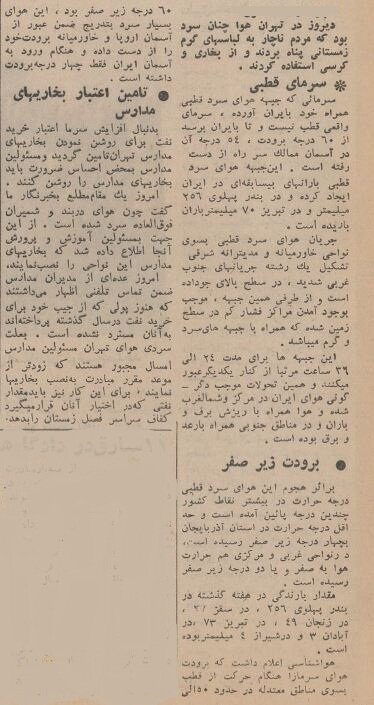 دیروز در تهران هوا چنان سرد
بود که مردم ناچار به لباسهای گرم
زمستانی پناه بردند و از بخاری و
کرسی استفاده کردند .
سرمای قطبی
سرمائی که جبهه هوای سرد قطبی
همراه خود بایران آورده ، سرمای
واقعی قطب نیست و تا بایران برسد
از ۶۰ درجه برودت ، ۵۴ درجه آن
در آسمان ممالك سر راه از دست
رفته است . این‌جبهه هوای سرد
قطبی بارانهای بیسابقه‌ای در ایران
ایجاد کرده و در بندر پهلوی ۲۵۶
میلیمتر و در تبریز ۷۰ میلیمترباران
باریده است .
جریان هوای سرد قطبی بسوی
نواحی خاورمیانه و مدیترانه شرقی
تشکیل یك رشته جریانهای جنوب
غربی شدید ، در سطح بالای جوداده
است و از طرفی همین جبهه ، موجب
بوجود آمدن مراکز فشار کم در سطح
زمین شده که همراه با جبهه های‌سرد
و گرم میباشد .
این جبهه ها برای مدت ۲۴ الی
۳۶ ساعت مرتبا از کنار یکدیگرعبور
میکنند و همین تحولات موجب دگر ـ
گونی هوای ایران در مرکز وشمالغرب
شده و هوا همراه با ریزش برف و
باران و در مناطق جنوبی همراه بارعد
و برق بوده است .
برودت زیر صفر
براثر هجوم این هوای سرد قطبی
درجه حرارت در بیشتر نقاط کشور
چندین درجه پائین آمده است و حد
اقل درجه حرارت در استان آذربایجان
بچهار درجه زیر صفر رسیده است،
د رنواحی غربی و مرکزی هم حرارت
هوا به صفر و یا دو درجه زیر صفر
رسیده است .
مقدار بارندگی در هفته گذشته در
بندر پهلوی ۲۵۶ ، در سقز ، در
در زنجان ۴۹ ، در تبریز ۷۳ ،در
آبادان ۳ و درشیراز ۴ میلیمتربوده
است .
هواشناسی اعلام داشت که برودت
هوای سرمازا هنگام حرکت از قطب
بسوی مناطق معتدله در حدود ۵۰الی
۶۰ درجه زیر صفر بود ، این هوای
بسیار سرد بتدریج ضمن عبور از
آسمان اروپا و خاورمیانه برودت‌خود
را از دست داده و هنگام ورود به
آسمان ایران فقط چهار درجه‌برودت
داشته است .
تامین اعتبار بخاریهای
مدارس
بدنبال افزایش سرما اعتبار خرید
نفت برای روشن نمودن بخاریهای
مدارس تهران‌تامین گردید ومسئولین
مدارس بمحض احساس ضرورت باید
بخاریهای مدارس را روشن کنند .
امروز یك مقام‌مطلع بخبرنگار ما
گفت چون هوای دربند و شمیران
فوق‌العاده سرد شده است . از این
جهت بمسئولین آموزش و پرورش
آنجا اطلاع داده شد که بخاریهای
مدارس این نواحی را نصب‌نمایند،
امروز عده‌ای از مدیران مدارس
ضمن تماس تلفنی اظهار می‌داشتند
که هنوز پولی که از جیب خود برای
خرید نفت درسال گذشته پرداخته‌اند
به‌آنان مسترد نشده است . بعلت
سردی هوای تهران مسئولین مدارس
امسال مجبور هستند که زودتر از
موعد مقرر مبادرت به‌نصب بخاریها
نمایند ، برای این کار نیز بایدمقدار
نفتی که‌در اختیار آنان قرارمیگیرد
کفاف سراسر فصل زمستان رابدهد.